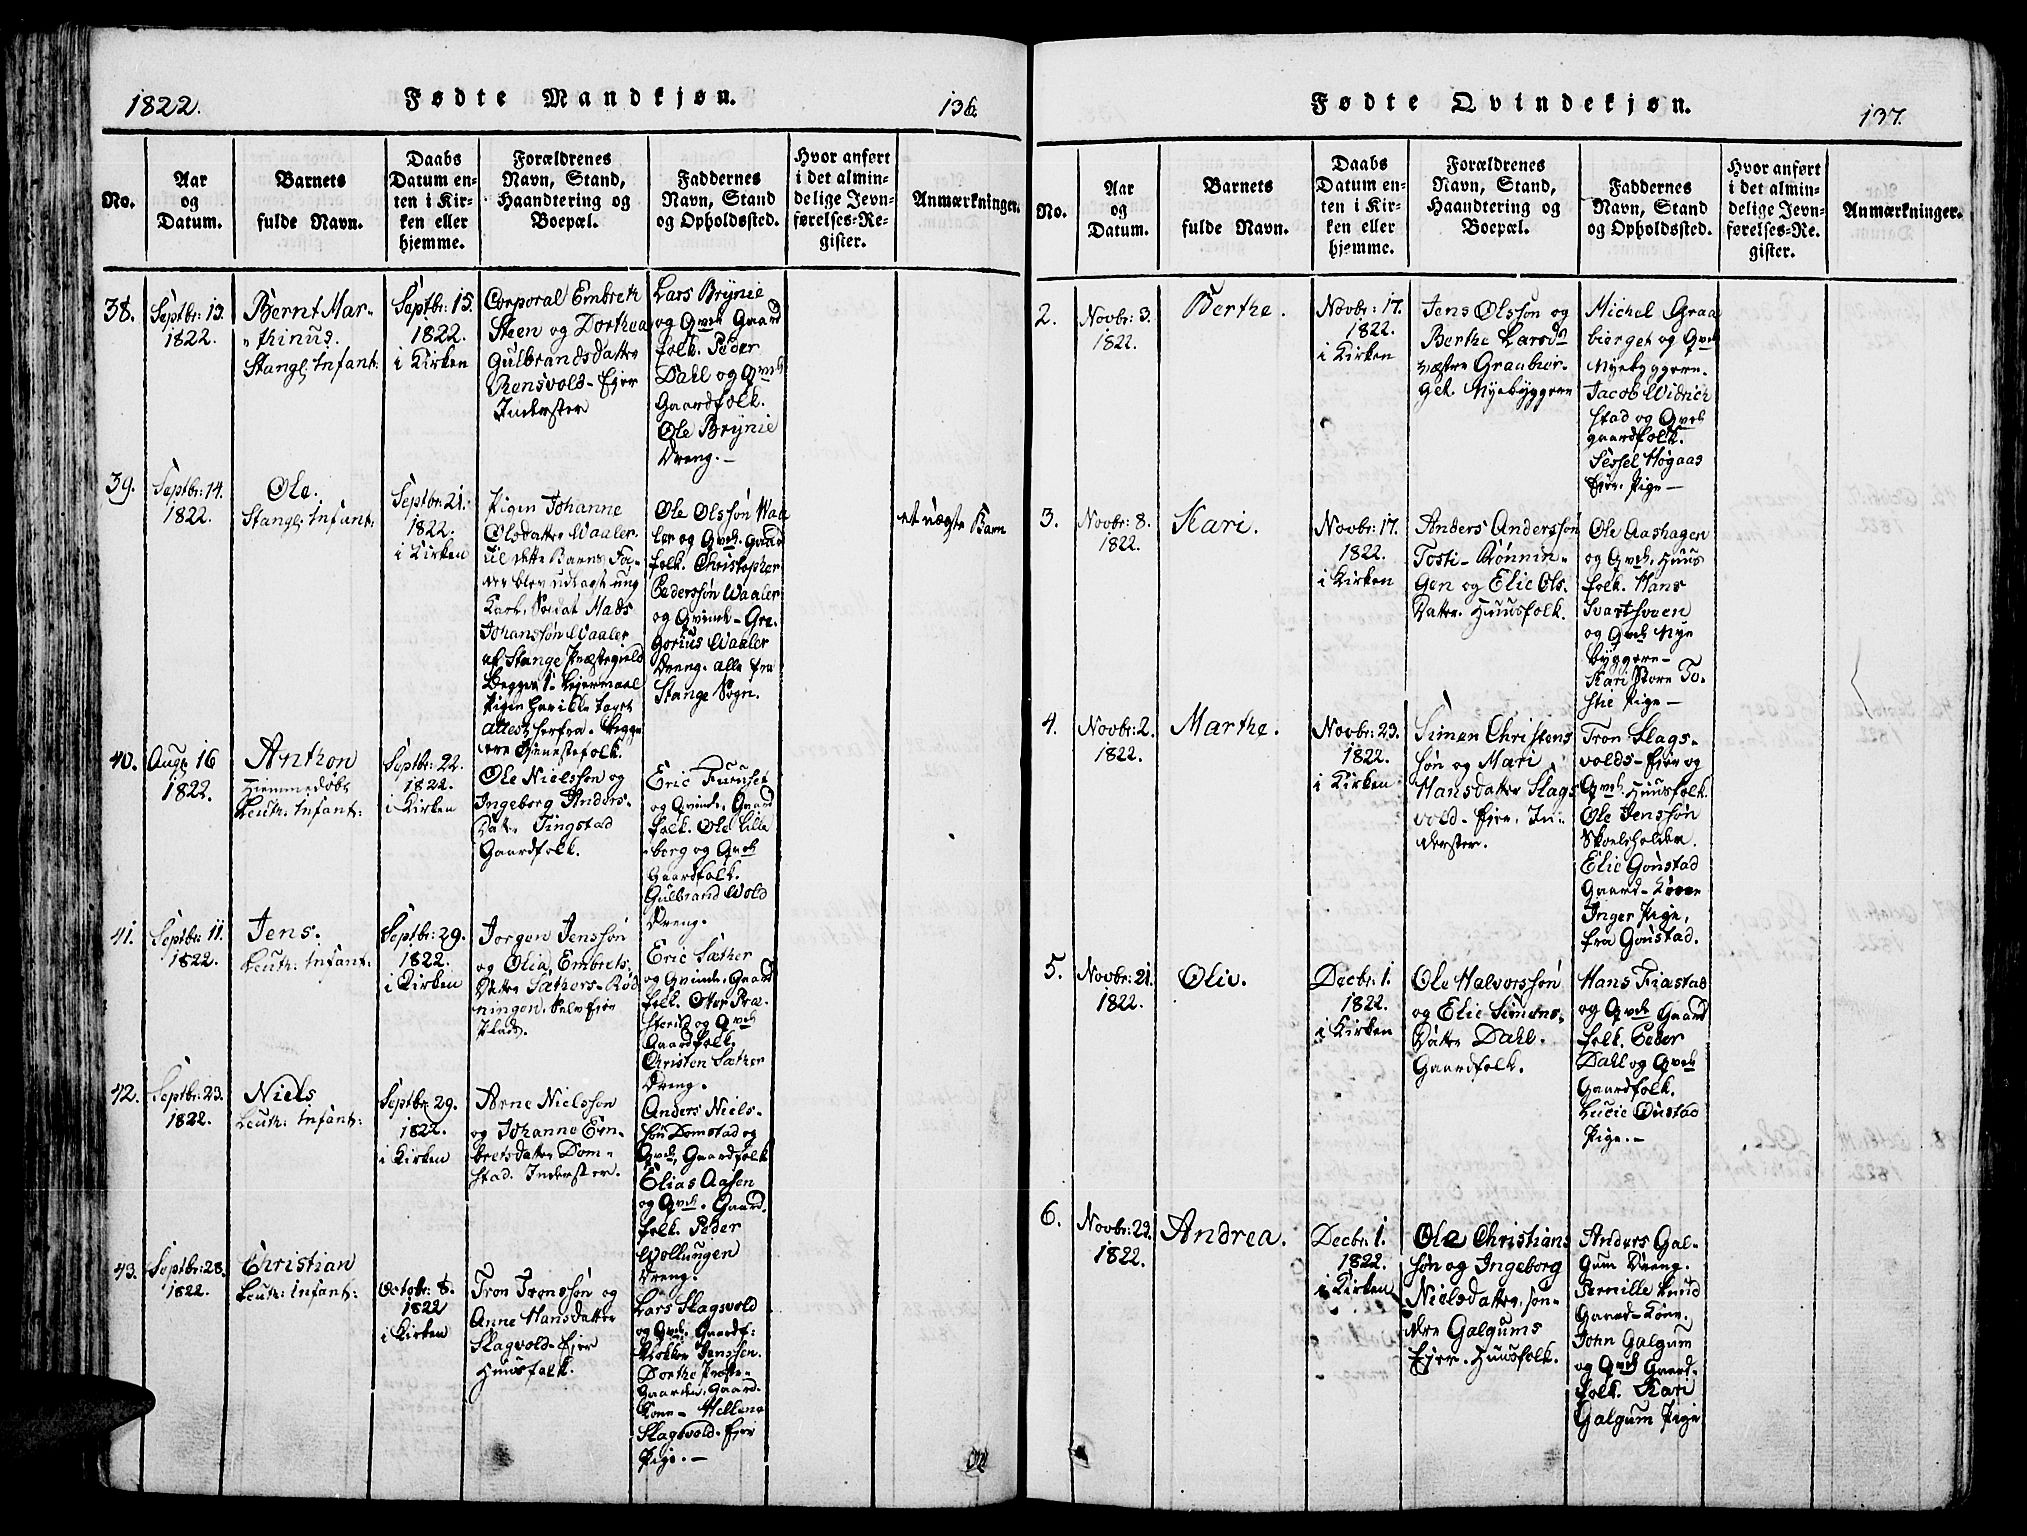 1822.
Fødte Mandkjøn.
136.
No.
Aar
og
Datum.
Barnets
fulde Navn.
Daabs
Datum en-
ten i Kir-
ken eller
hjemme.
Forældrenes
Navn, Stand,
Haandtering og
Boepæl.
Faddernes
Navn, Stand
og Opholdssted.
Hvor anført
i det almin-
delige Jevn-
førelses-Re-
gister.
Anmærkninger.
38.
Septbr: 13.
1822.
Bernt Mar-
thinus.
Stangl: Infant:
Septbr: 15.
1822.
i Kirken
Corporal Embret
Steen og Dorthea
Gulbrandsdatter
Rønsvold-Ejer
Inderster
Lars Brynie
og Qvde Gaard
folk. Peder
Dahl og Qvde
Gaardfolk.
Ole Brynie
Dreng.-
39.
Septbr: 14.
1822.
Ole.
Stangl: Infant:
Septbr: 21.
1822.
i Kirken
Pigen Johanne
Olsdatter Waaler
til dette Barns Fa-
der blev udlagt ung
Karl, Soldat Mads
Johanssøn Waaler
af Stange Præstegield
Begges 1. Leiermaal
Pigen har ikke taget
Alterst herfra. Begge
ere Tienestefolk.
Ole Olssøn Waa
ler og Qvde. Gaard
folk. Christopher
Pederssøn Waaler
og Qvinde- Gre-
gorius Waaler
Dreng. alle fra
Stange Sogn.
et uægte Barn
40.
Augs 16
1822.
Anthon
Hiemmedøbt
Leuth: Infant:
Septbr: 22.
1822.
i Kirken
Ole Nielssøn og
Ingeborg Anders-
Datter Tingstad
Gaardfolk.
Eric Furuset
og Qvinde, Gaard
folk. Ole Lille
borg og Qvde
Gaardfolk.
Gulbrand Wold
Dreng.
41.
Septbr: 11.
1822.
Jens.
Leuth: Infant:
Septbr: 29.
1822.
i Kirken
Jorgen Jenssøn
og Olia Embrets
Datter Sæthers-Rød
ningen. Selvejer
Plads.
Eric Sæther
og Qvinde, Gaard
folk. Oter Præ-
sterud og Qvde
Gaardfolk.
Christen Sæther
Dreng.
42.
Septbr: 23.
1822.
Niels
Leuth: Infant:
Septbr: 29.
1822.
i Kirken
Arne Nielssøn
og Johanne Em-
bretsdatter Dom-
stad. Inderster.
Anders Niels-
søn Domstad og
Qvde, Gaardfolk
Elias Aasen
og Qvde. Gaard
folk. Peder
Wollungen
Dreng.
43.
Septbr: 28.
1822.
Christian
Leuth: Infant:
Octobr: 8.
1822
i Kirken
Tron Tronssøn og
Anne Hansdatter
Slagvold-Ejer
Huusfolk.
Lars Slagsvold
og Qvde. Gaardf:
Klokker Jenssen.
Dorthe Præste-
Gaarden, Gaard-
Kone- Hellene
Slagsvold-Ejer
Pige.-
Fødte Qvindekjøn.
137.
No.
Aar
og
Datum.
Barnets
fulde Navn.
Daabs
Datum en-
ten i Kir-
ken eller
hjemme.
Forældrenes
Navn, Stand,
Haandtering og
Boepæl.
Faddernes
Navn, Stand
og Opholdssted.
Hvor anført
i det almin-
delige Jevn-
førelses-Re-
gister.
Anmærkninger.
2.
Novbr: 3.
1822.
Berthe.
Novbr: 17.
1822.
i Kirken
Jens Olssøn og
Berthe Larsda
næstre Graabier-
get Nyebyggere
Michel Graa
bierget og Qvde
Nyebyggere.
Jacob Widrich
stad og Qvde
gaardfolk.
Sessel Høgaas
Ejer. Pige-
3.
Novbr: 8.
1822.
Kari.
Novbr: 17.
1822.
i Kirken
Anders Anderssøn
Tosti-Rønnin-
gen og Elie Ols-
Datter. Huusfolk.
Ole Aashagen
og Qvde, Huus
folk. Hans
Svartsveen
og Qvde Nye
byggere-
Kari Store To-
stie Pige-
4.
Novbr: 2.
1822.
Marthe.
Novbr: 23.
1822.
i Kirken
Simen Christens
søn og Mari
Hansdatter Slags
vold-Ejer. In-
derster.
Tron Slags-
volds-Ejer og
Qvde. Huusfolk.
Ole Jenssøn
Skoeleholder.
Elie Gonstad
Gaard-Kone
Inger Pige,
fra Gonstad.
5.
Novbr: 21.
1822.
Oliv.
Decbr: 1.
1822.
i Kirken
Ole Halvorssøn
og Elie Simens-
Datter Dahl.
Gaardfolk.
Hans Fiæstad
og Qvde Gaard
folk. Peder
Dahl og Qvde
Gaardfolk.
Lucie Oustad
Pige.-
6.
Novbr: 29.
1822.
Andrea.
Decbr: 1.
1822.
i Kirken
Ole Christians
søn og Ingeborg
Nielsdatter, søn-
dre Galgums
Ejer. Huusfolk.
Anders Gal-
gum Dreng.
Pernille Knud
Gaard-Kone.
John Galgum
og Qvde Gaard-
folk. Kari
Galgum Pige